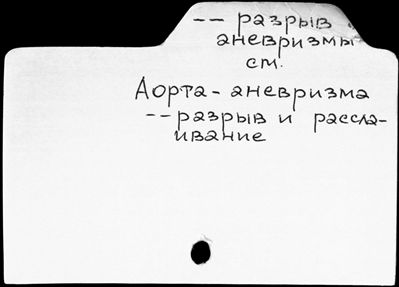 -- разрыв
аневризмы
см.
Аорта - аневризма
-- разрыв и рассла-
ивание